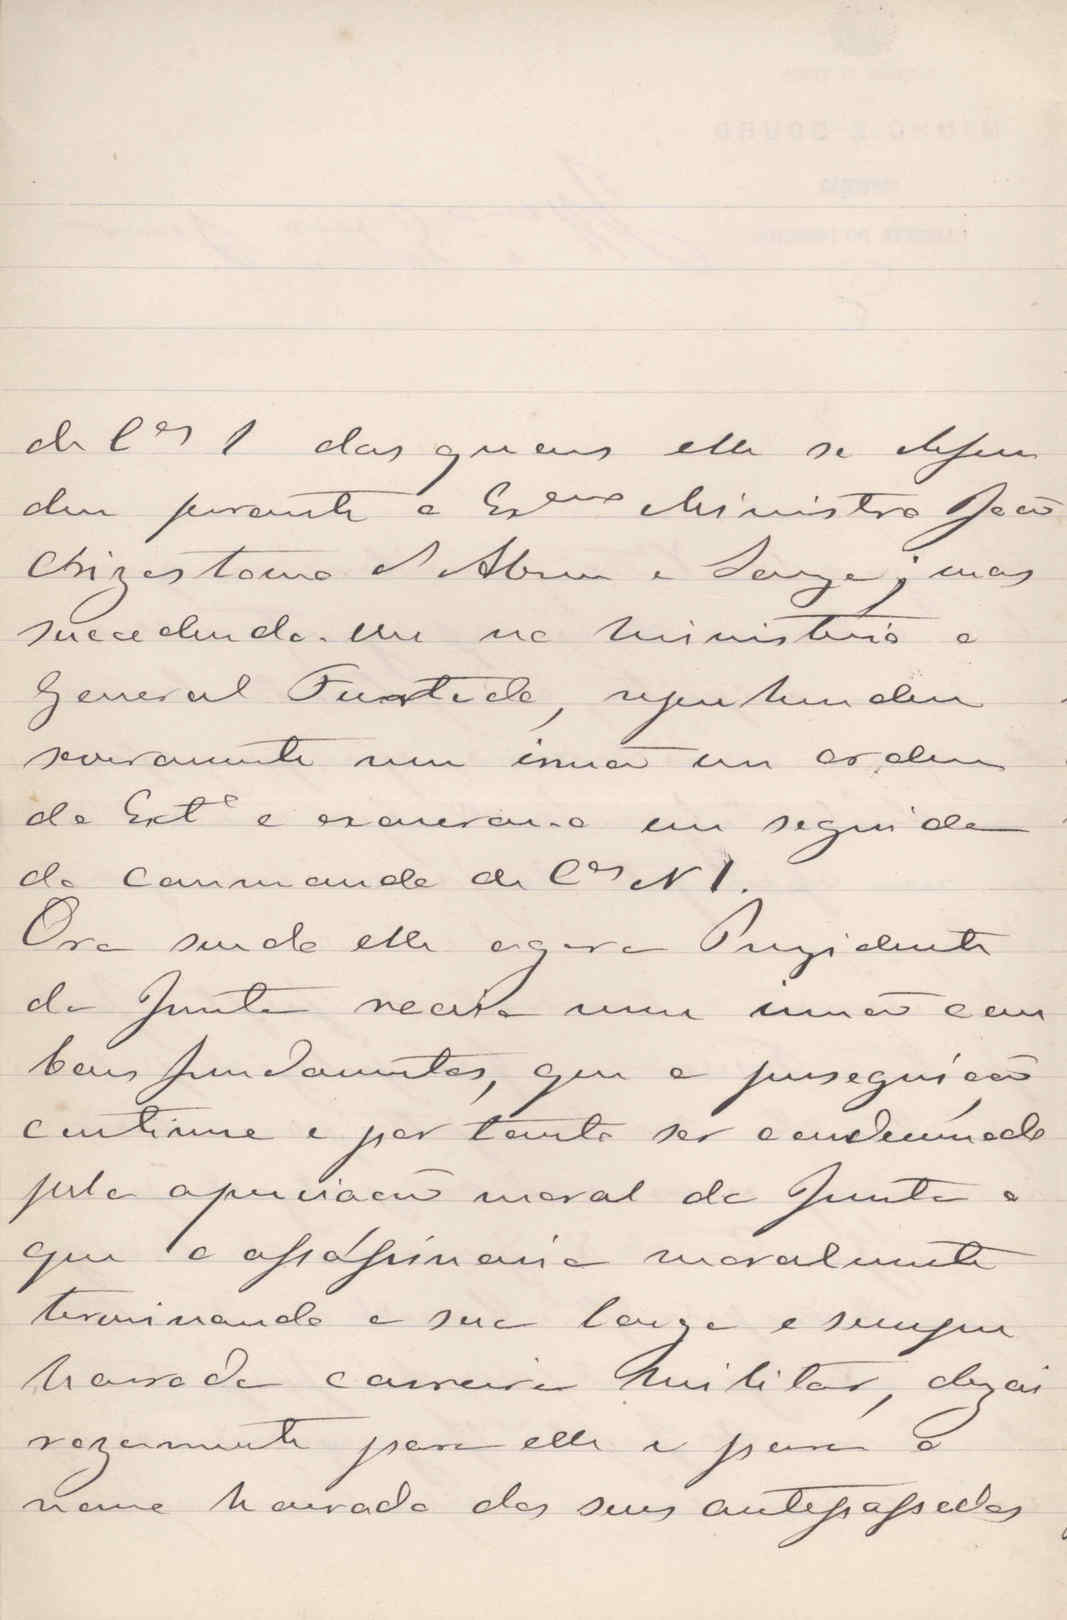 de C.es 1 das quaes elle se defen
deu perante o Ex.mo Ministro João
Chrizostomo d'Abreu e Souza; mas
succedendo-lhe no ministerio o
General Furtado, reprehendeu
severamente meu irmão em ordem
do Ext.o e exonerou-o em seguida
do commando de C.es N 1.
Ora sendo elle agora Prezidente
da Junta receia meu irmão com
bons fundamentos, que a perseguição
continue e por tanto ser condemnado
pela apreciação moral da Junta o
que o assássinaria moralmente
terminando a sua longa e sempre
honrada carreira militar, dezai
rozamente para elle e para o
nome honrado dos seus antepassados